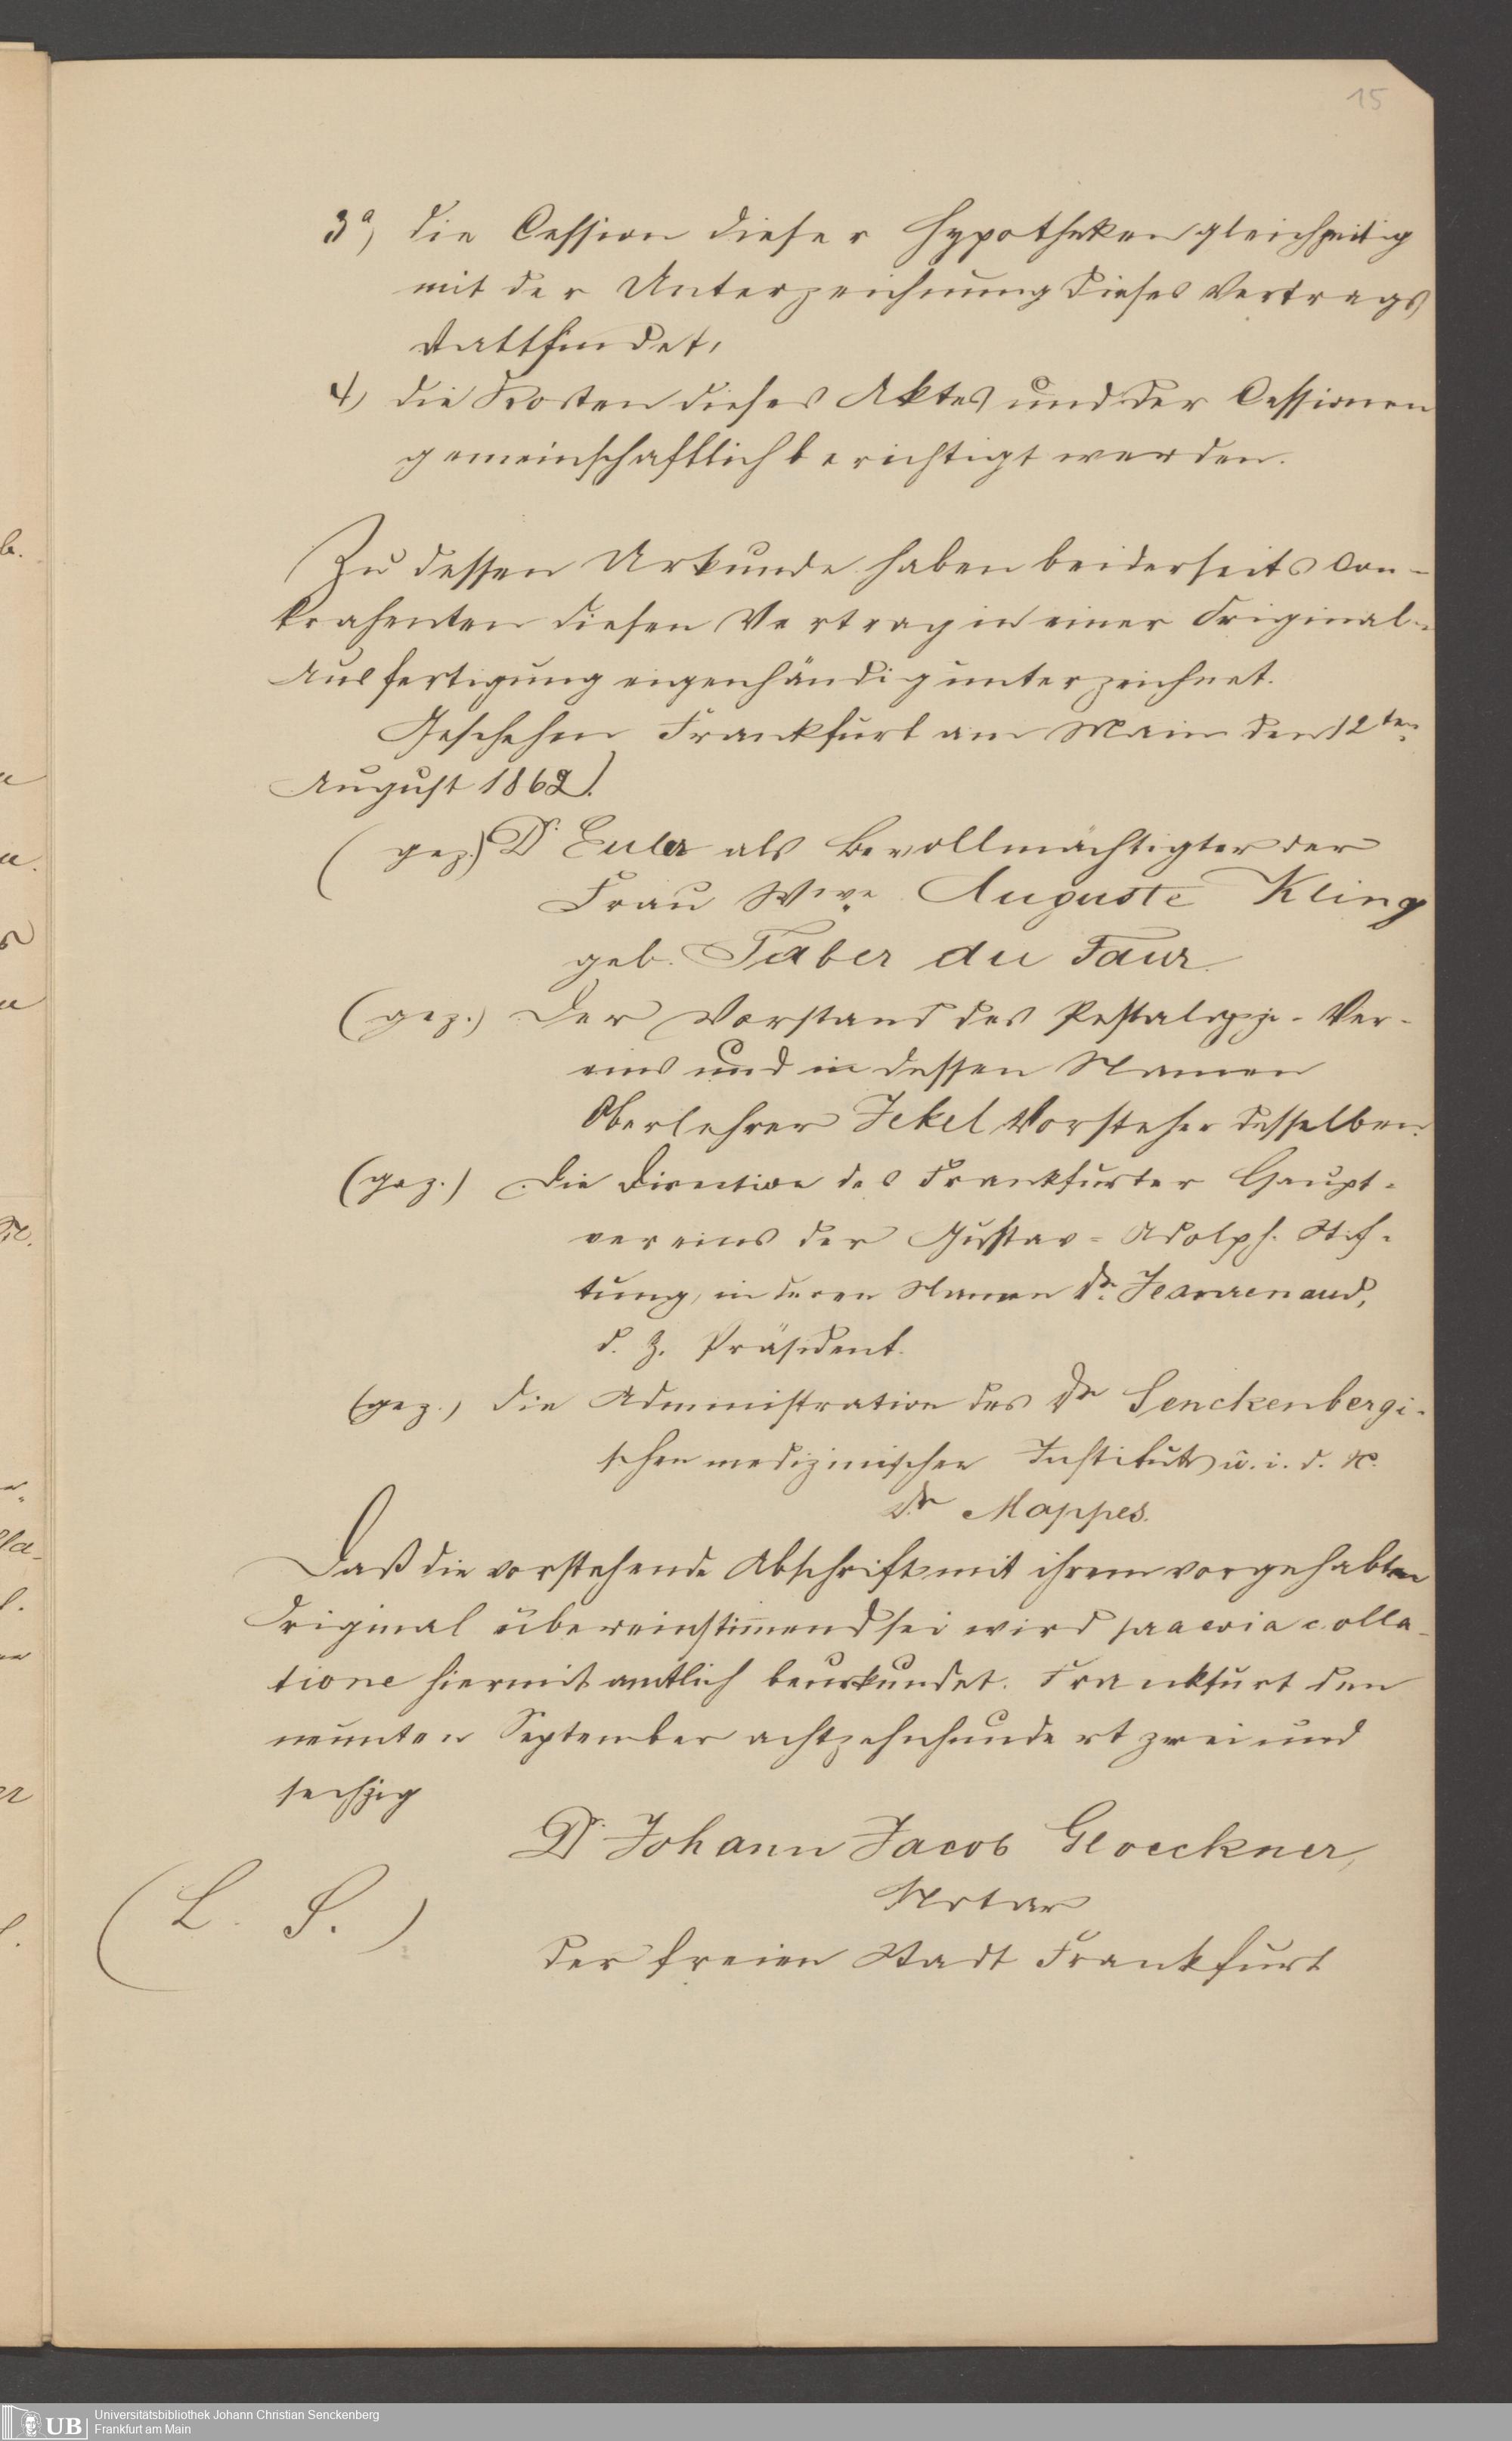 15
3a, die Cession dieser Hypotheken gleichzeitig
mit der Unterzeichnung dieses Vertrags
stattfindet,
4, die Kosten dieses Aktes und der Cessionen
gemeinschaftlich berichtigt werden.
Zu dessen Urkunde haben beiderseits Con-
trahenten diesen Vertrag in einer Original-
Ausfertigung eigenhändig unterzeichnet.
Geschehen Frankfurt am Main den 12ten
August 1862.
(gez.) Dr. Euler als Bevollmächtigter der
Frau Wwe. Auguste Kling
geb. Faber du Faur
(gez.) Der Vorstand des Pestalozzi-Ver-
eins und in dessen Namen
Oberlehrer Jekel Vorsteher desselben.
(gez.) Die Direction des Frankfurter Haupt-
vereins der Gustav-Adolph. Stif-
tung, in deren Namen Dr. Jeanrenaud,
d. Z. Präsident.
(gez.) die Administration des Dr Senckenbergi-
schen medizinischen Instituts u. i. d. N.
Dr Mappes.
Daß die vorstehende Abschrift mit ihrem vorgehabten
Original übereinstimmend sei wird praevia colla-
tione hiermit amtlich beurkundet. Frankfurt den
neunten September achtzehnhundert zwei und
sechzig
Dr. Johann Jacob Gloeckner,
Notar
(L. S.)
der freien Stadt Frankfurt
UB
Universitätsbibliothek Johann Christian Senckenberg
Frankfurt am Main